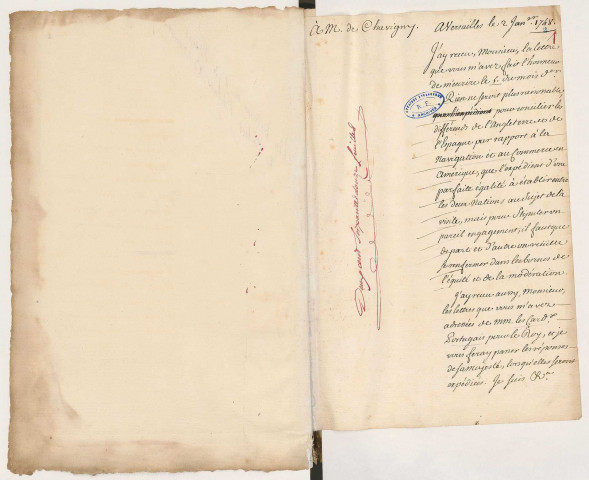 à M. de Chavigny.
A Versailles le 2 Janer. 1748.
J'ay receu, Monsieur, la lettre
que vous m'avez fait l'honneur
de m'ecrire le 1. du mois der.
Rien ne seroit plus raisonnable,
pour concilier les
differends de l'Angleterre et de
l'Espagne par rapport à la
Navigation et au Commerce en
Amérique, que l'expédient d'une
parfaite égalité à établir entre
les deux Nations au Sujet de la
visite, mais pour Stipuler un
pareil engagement, il faut que
de part et d'autre on veuille
se renfermer dans les bornes de
l'équité et de la modération.
J'ay receu aussy, Monsieur,
les lettres que vous m'avez
adressées de MM. les Card.
Portugais pour le Roy, et je
vous feray passer les réponses
de Sa Majesté, lorsqu'elles seront
expédiées. Je suis &c.
AFFAIRES ETRANGERES
A. E.
ARCHIVES